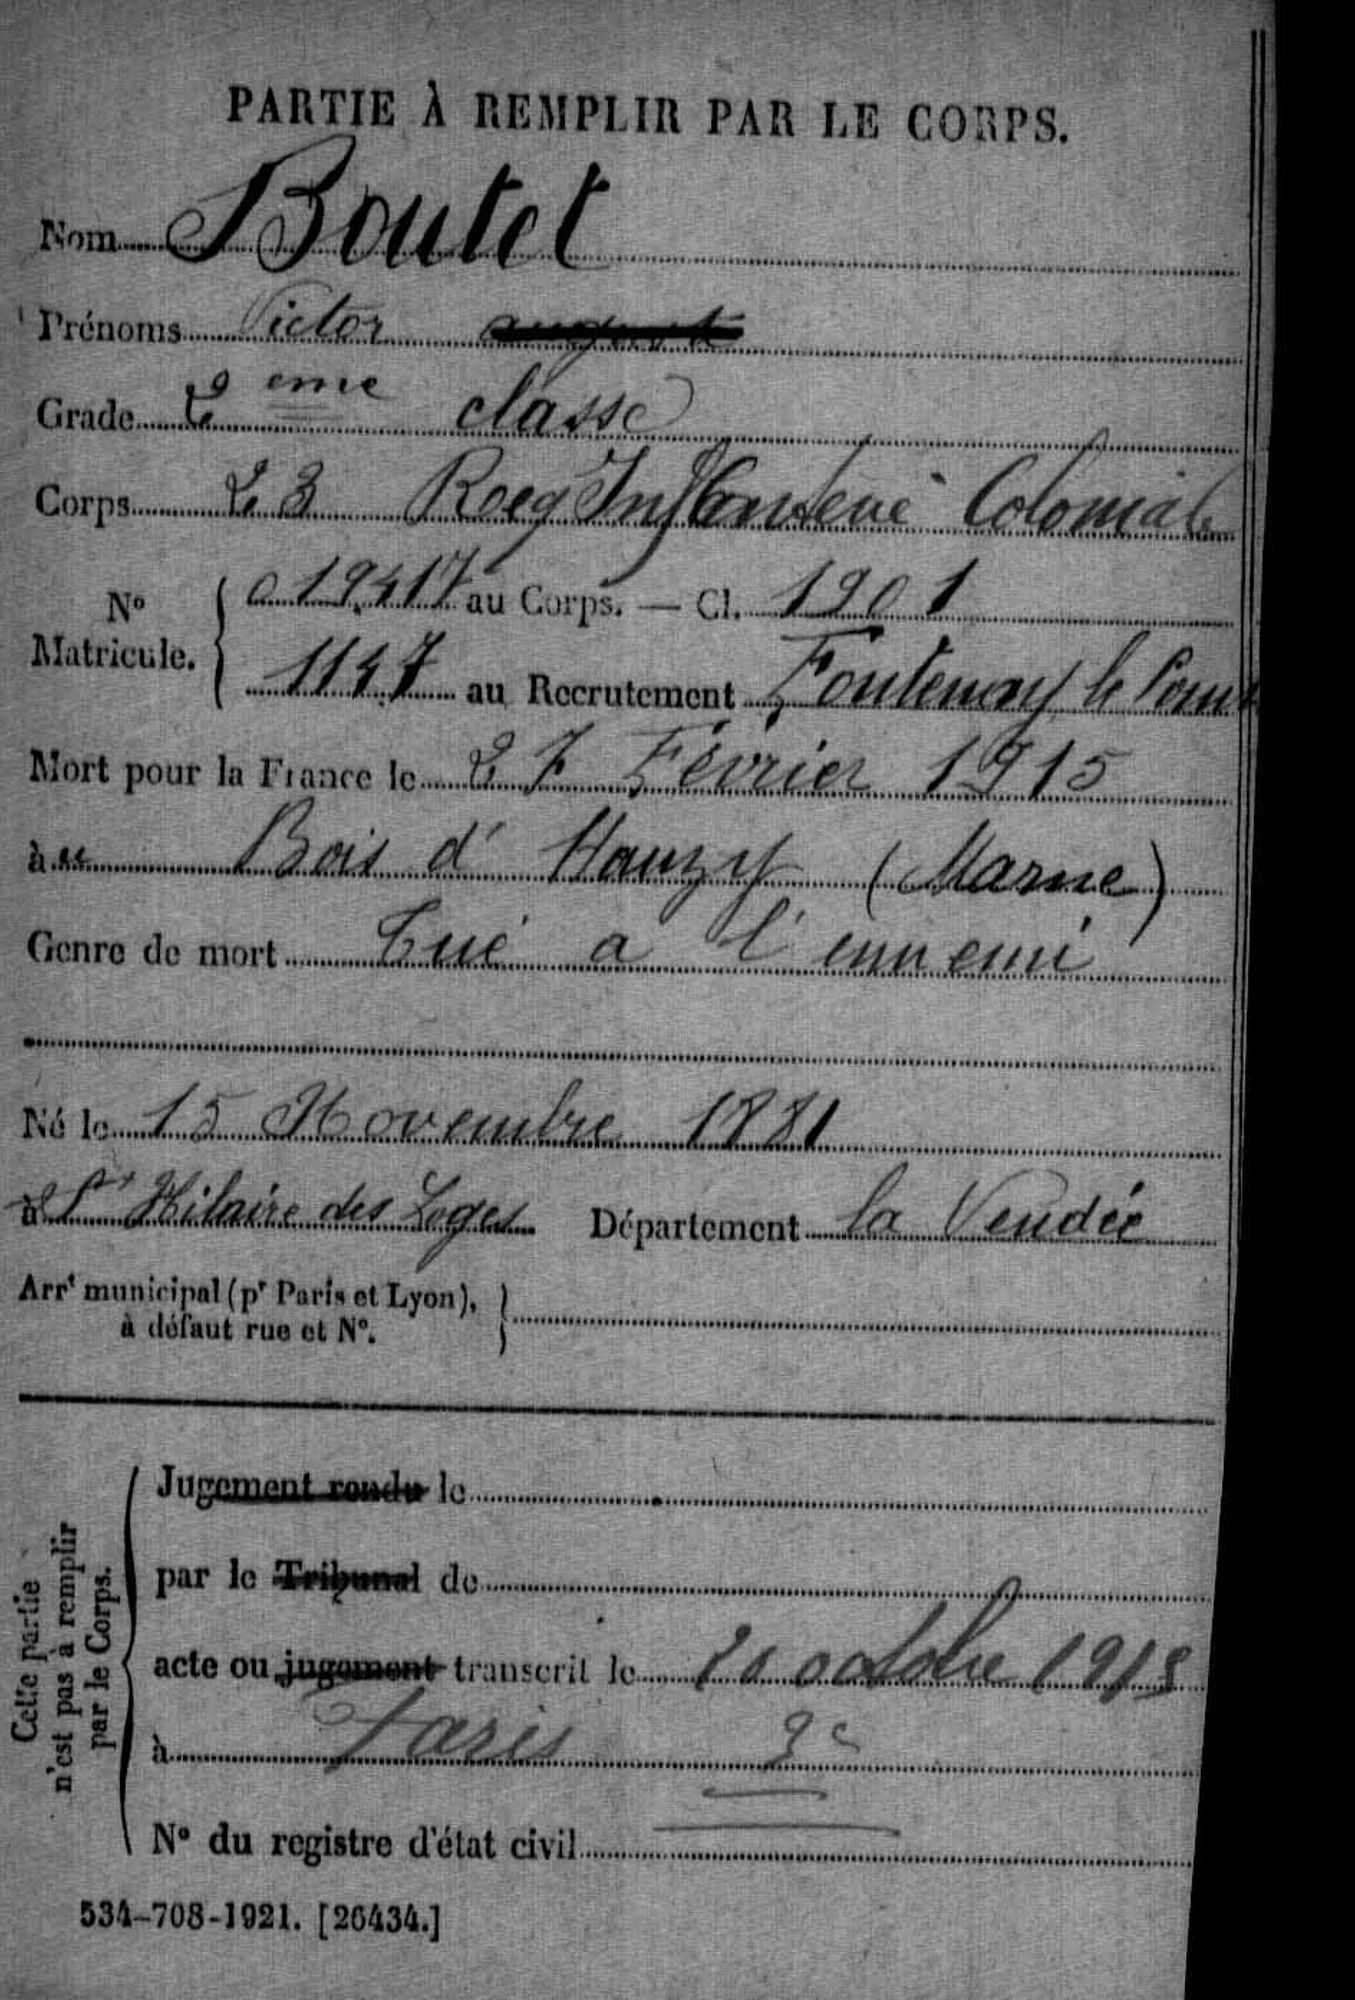 PARTIE À REMPLIR PAR LE CORPS.
Nom Boutet
Prénoms Victor august
Grade 2 eme classe
Corps 23 Roeg Infanterie Coloniale
N° Matricule. 019417 au Corps. — Cl. 1901
1147 au Recrutement Fontenay le Comt
Mort pour la France le 27 Février 1915
à u Bois d' Hauzy (Marne)
Genre de mort Tué a l'ennemi
Né le 15 Novembre 1881
à St Hilaire des Loges Département la Vendée
Arrt municipal (pr Paris et Lyon),
à défaut rue et N°.
Cette partie
n'est pas à remplir
par le Corps.
Jugement rendu le
par le Tribunal de
acte ou jugement transcrit le octobre
à Paris
N° du registre d'état civil
534-708-1921. [26434.]